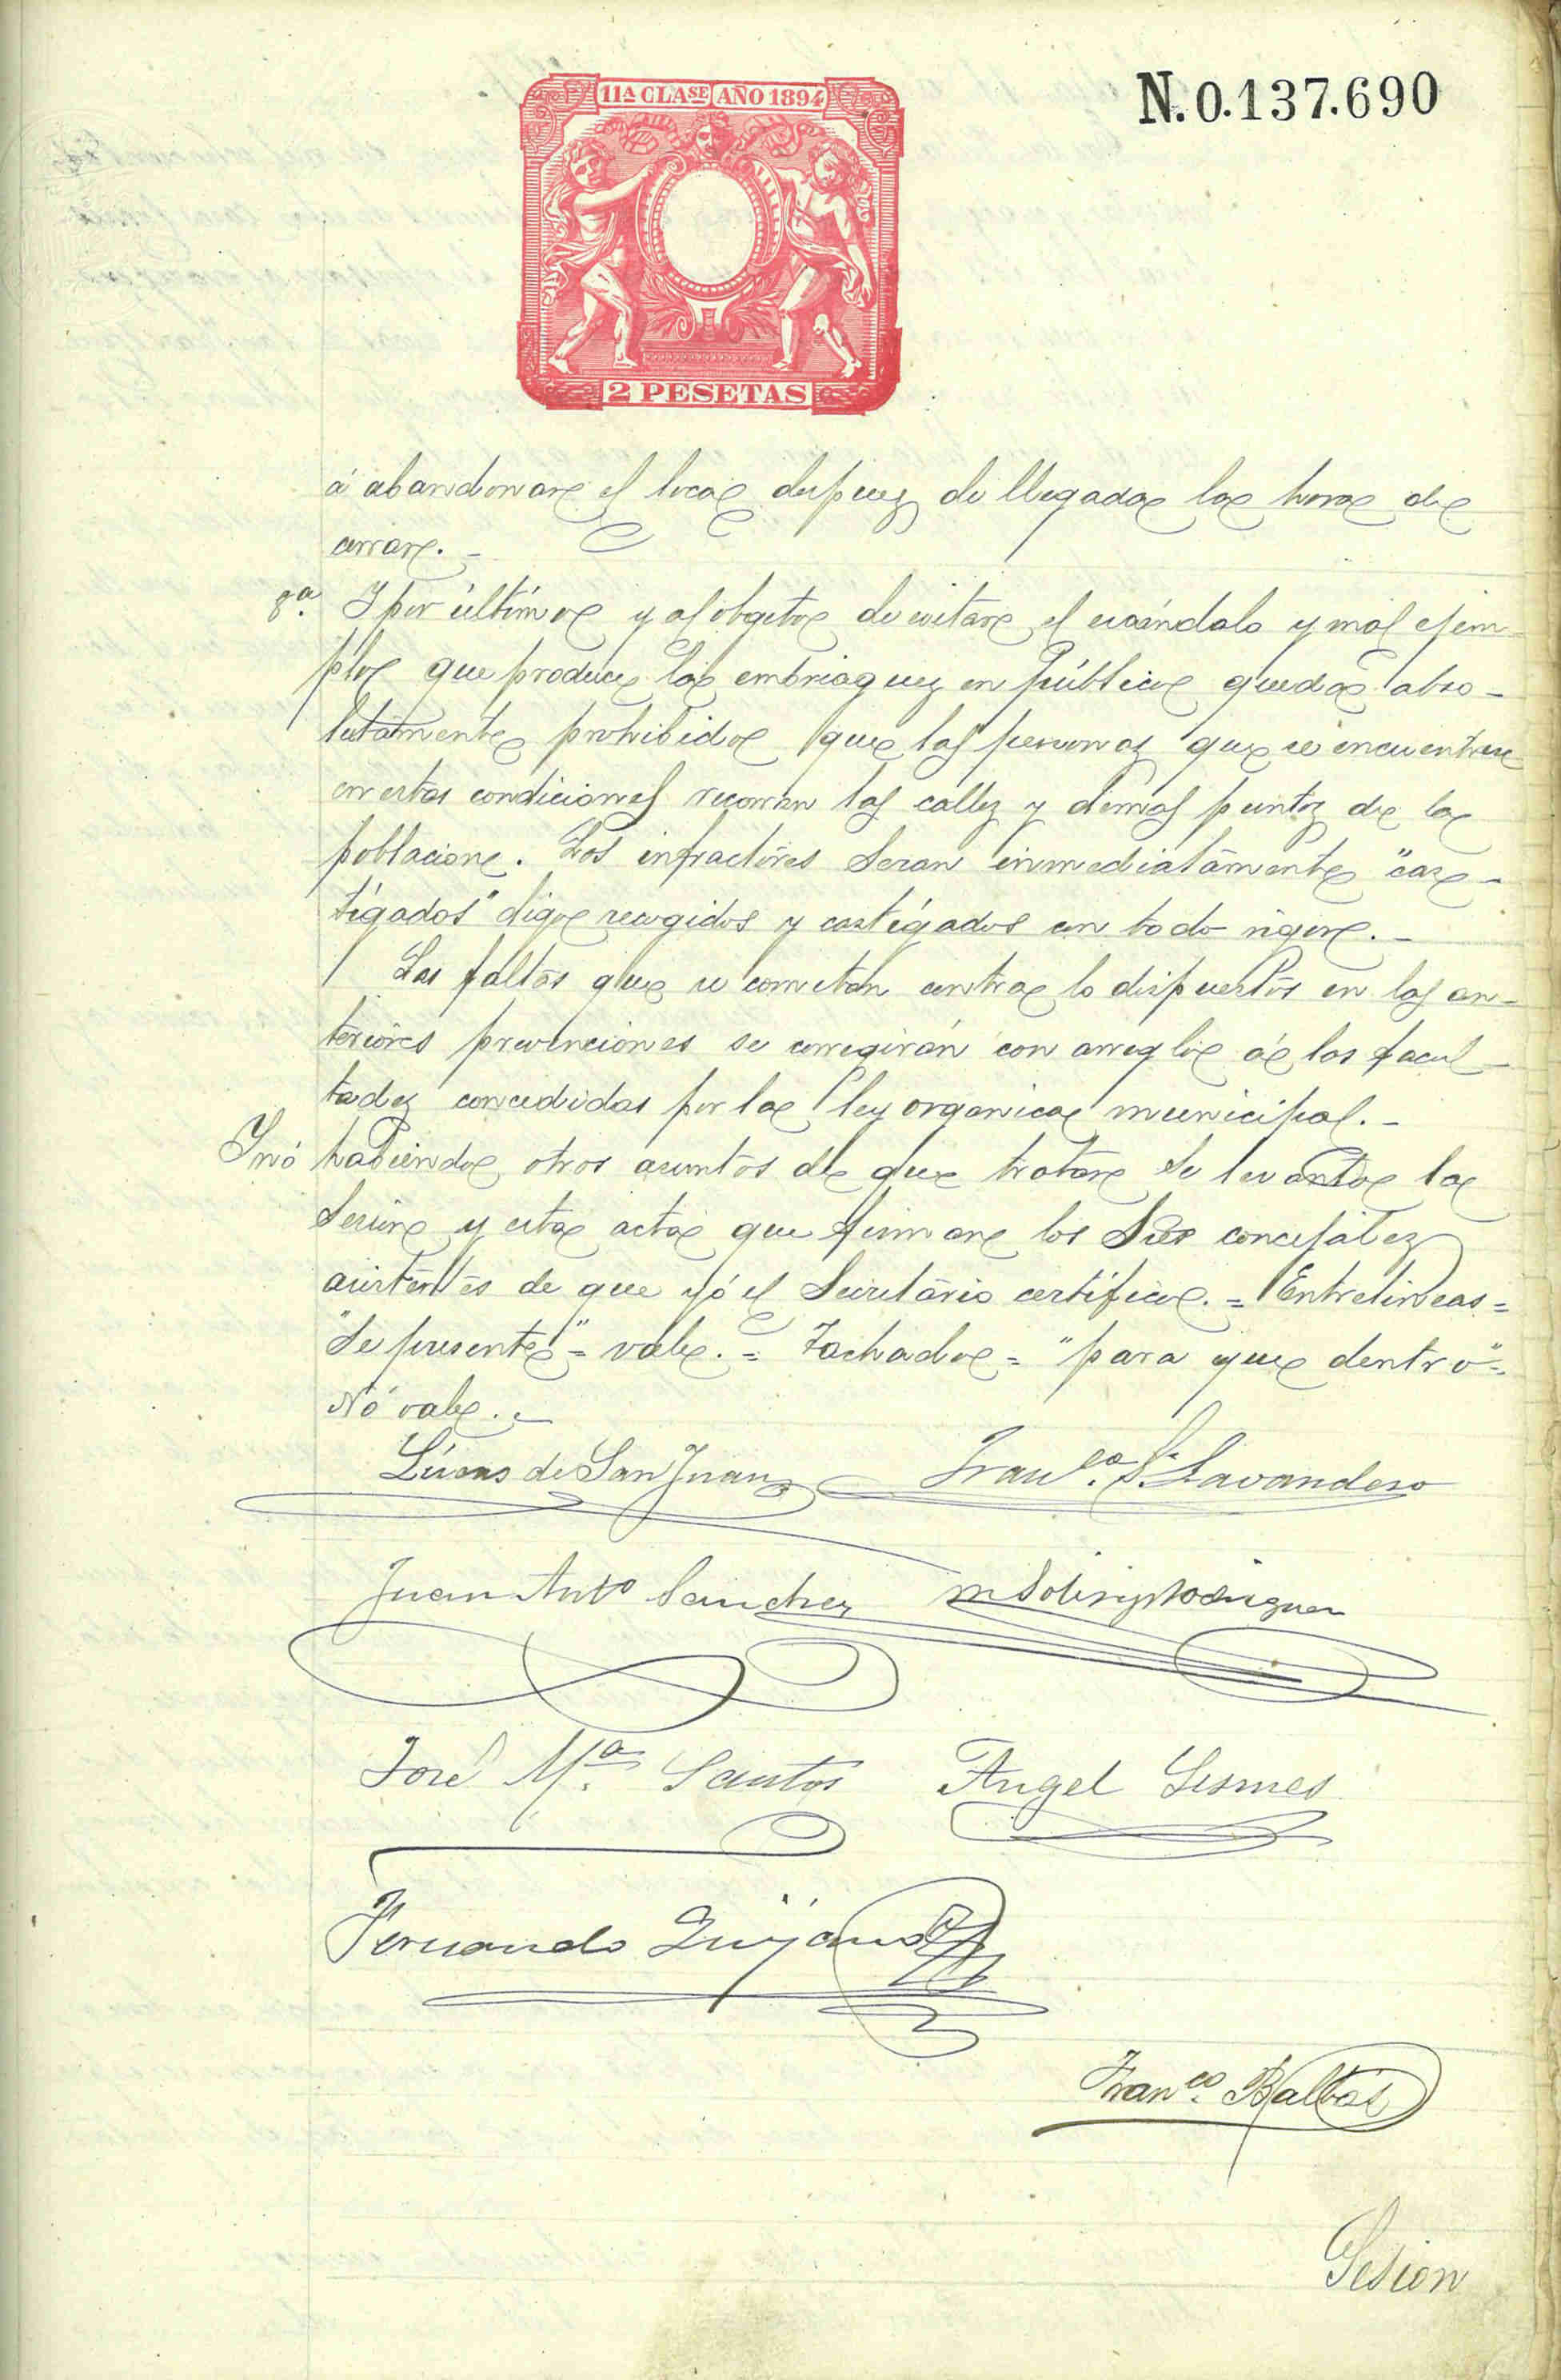 11ª CLASE AÑO 1894
N.0.137.690
2 PESETAS
á abandonar el local despues de llegada la hora de
cerrar.-
8ª. Y por último y al obgeto de evitar el escándalo y mal ejem-
plo que produce la embriaguez en público queda abso-
lutamente prohibido que las personas que se encuentren
en estas condiciones recorran las calles y demas puntos de la
poblacion. Los infractores seran inmediatamente "cas-
tigados" digo recogidos y castigados con todo rigor.-
Las faltas que se cometan contra lo dispuesto en las an-
teriores prevenciones se corregirán con arreglo á las facul-
tades concedidas por la ley organica municipal.-
Y nó habiendo otros asuntos de que tratar se levantó la
sesion y esta acta que firman los Sres concejales
asistentes de que yó el Secretario certifico.= Entrelineas=
"se presente"= vale.= Tachado= "para que dentro"=
Nó vale.-
Lúcas de San Juan Franco. S. Lavandero
Juan Anto Sanchez M Solis y Rodriguez
José Mª. Santos Angel Lesmes
Fernando Quijano
Franco. Balbás
Sesion